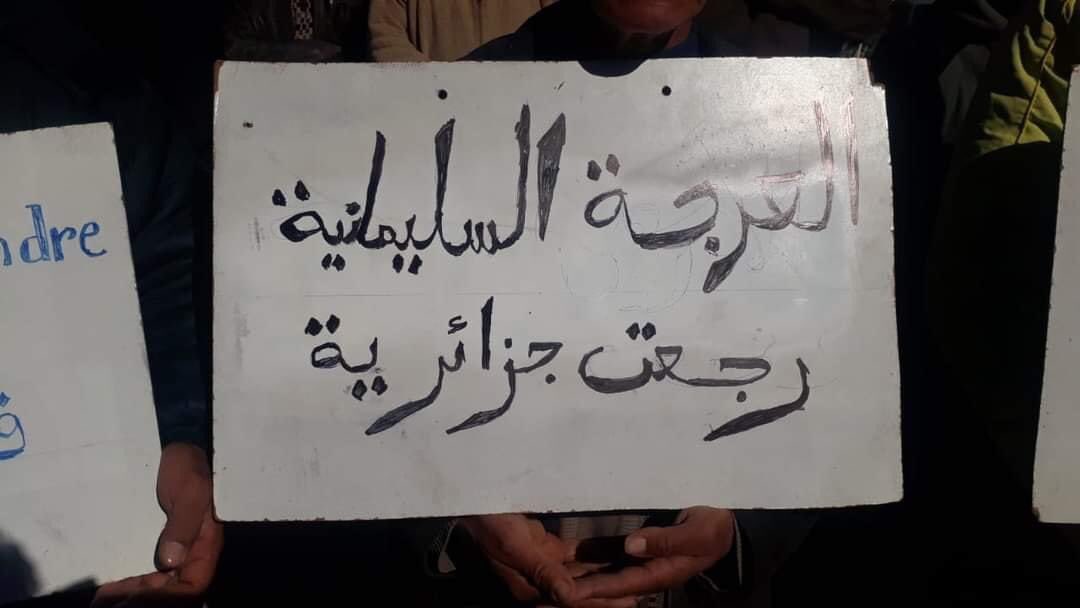 العرجة السليمانية
رجعت جزائرية
ndre
ق